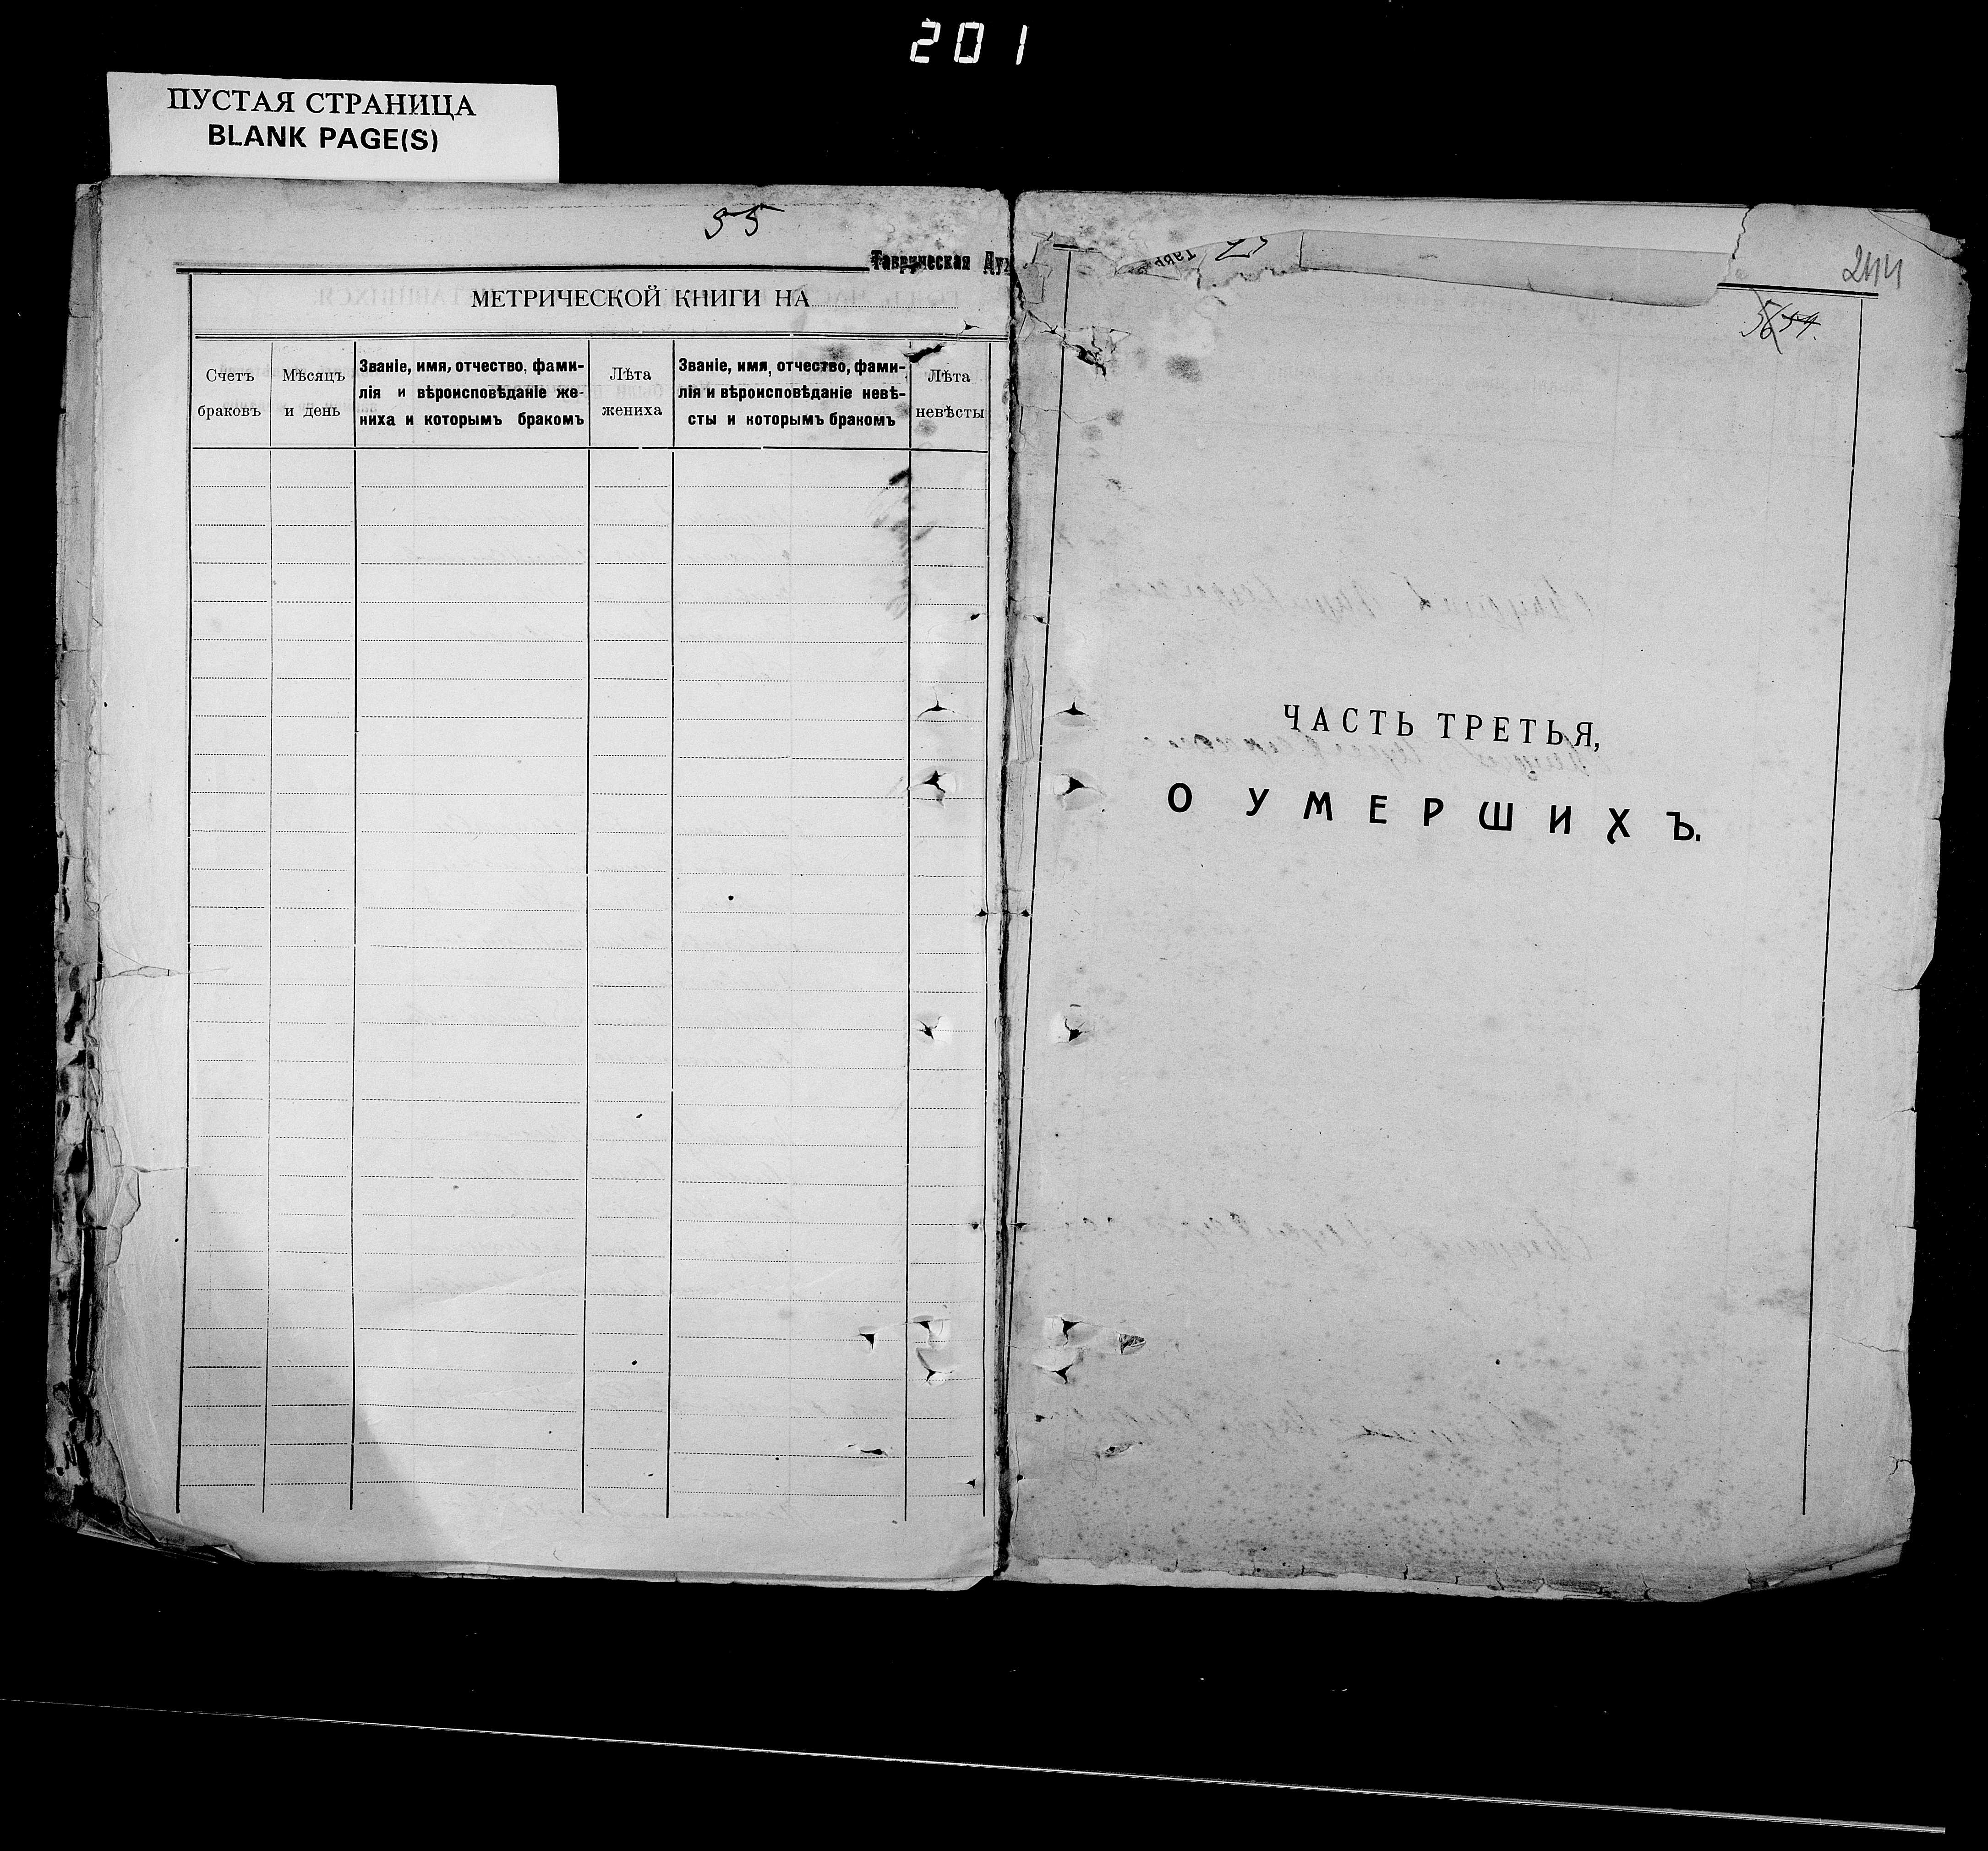 201
ПУСТАЯ СТРАНИЦА
BLANK PAGE(S)
55
Таврическая Дух
МЕТРИЧЕСКОЙ КНИГИ НА
Счетъ браковъ
Мѣсяцъ и день
Званіе, имя, отчество, фами-
лія и вѣроисповѣданіе же-
ниха и которымъ бракомъ
Лѣта жениха
Званіе, имя, отчество, фами-
лія и вѣроисповѣданіе невѣ-
сты и которымъ бракомъ
Лѣта невѣсты
244
ЧАСТЬ ТРЕТЬЯ,
О УМЕРШИХЪ.